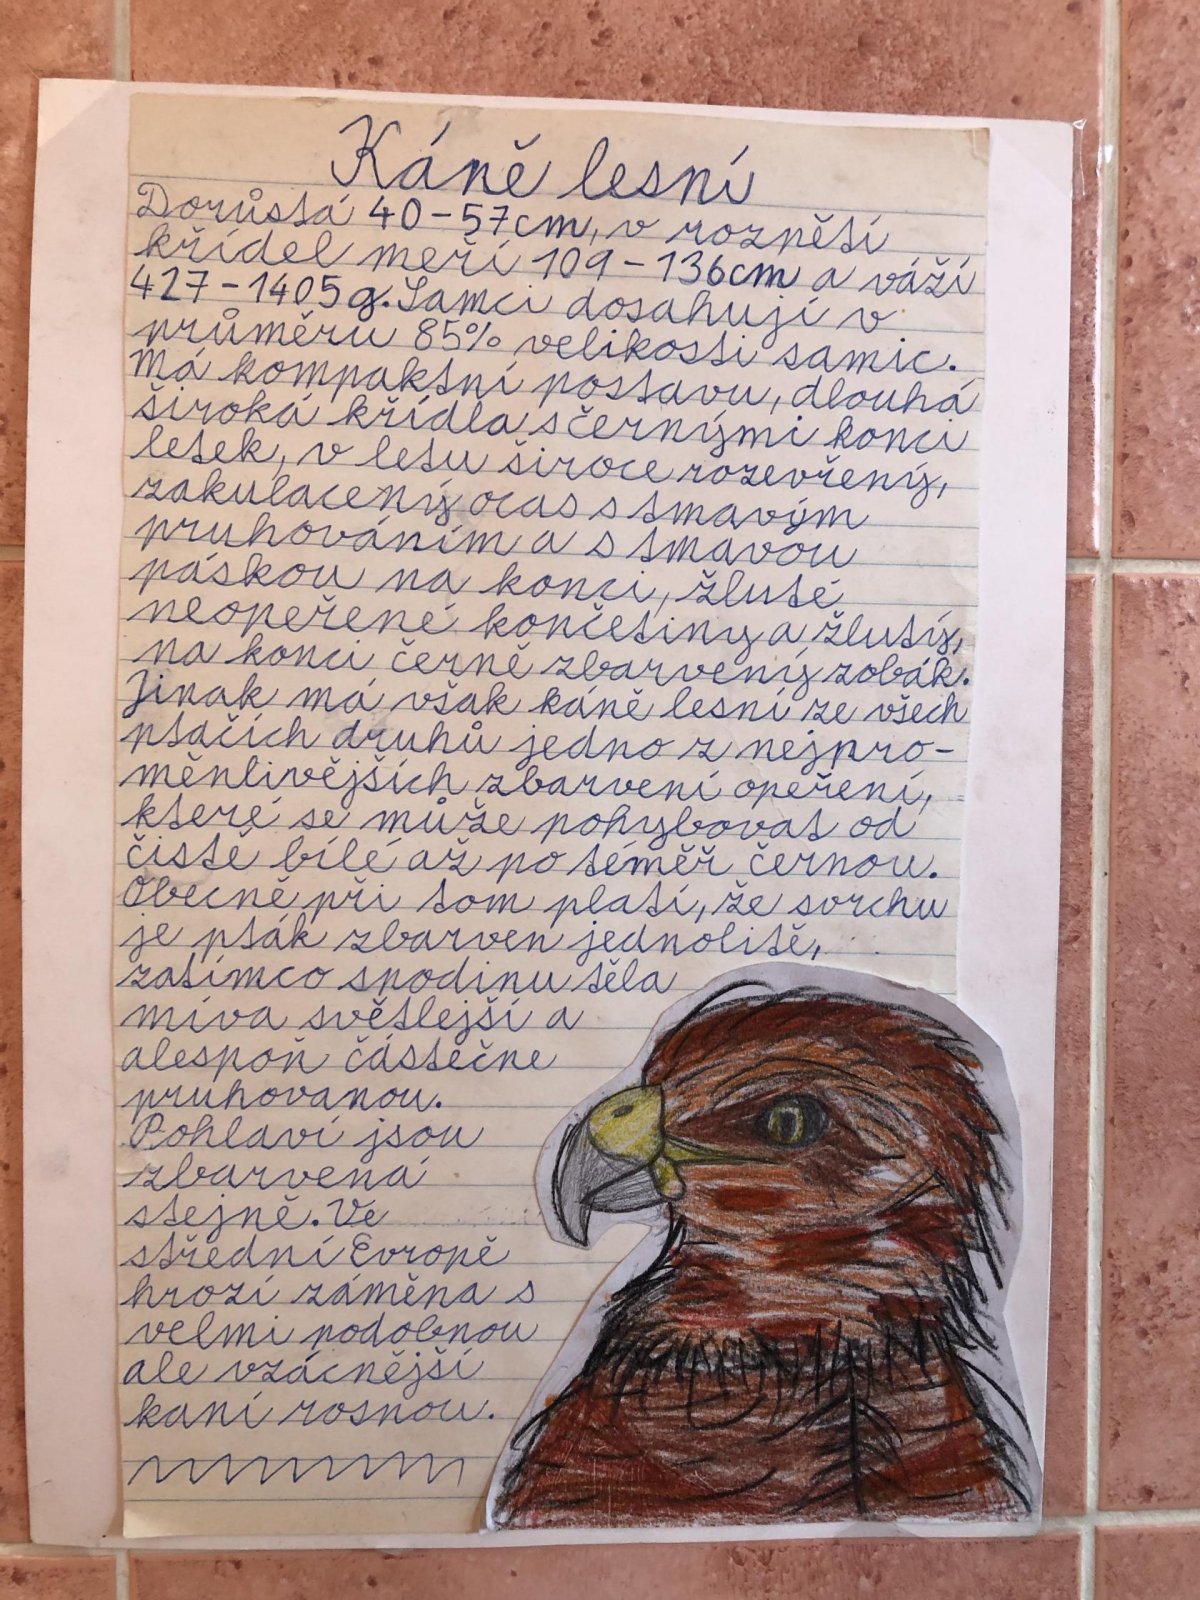 Káně lesní
Dorůstá 40-57cm, v rozpětí
křídel meří 109-136cm a váží
427-1405g. Samci dosahují v
průměru 85% velikosti samic.
Má kompaktní postavu, dlouhá
široká křídla s černými konci
letek, v letu široce rozevřený,
zakulacený ocas s tmavým
pruhováním a s tmavou
páskou na konci, žluté
neopeřené končetiny a žlutý,
na konci černě zbarvený zobák.
Jinak má však káně lesní ze všech
ptačích druhů jedno z nejpro-
měnlivějších zbarvení opeření,
které se může pohybovat od
čistě bílé až po téměř černou.
Obecně při tom platí, že svrchu
je pták zbarven jednolitě,
zatímco spodinu těla
míva světlejší a
alespoň částečne
pruhovanou.
Pohlaví jsou
zbarvená
stejně. Ve
střední Evropě
hrozí záměna s
velmi podobnou
ale vzácnější
kaní rosnou.